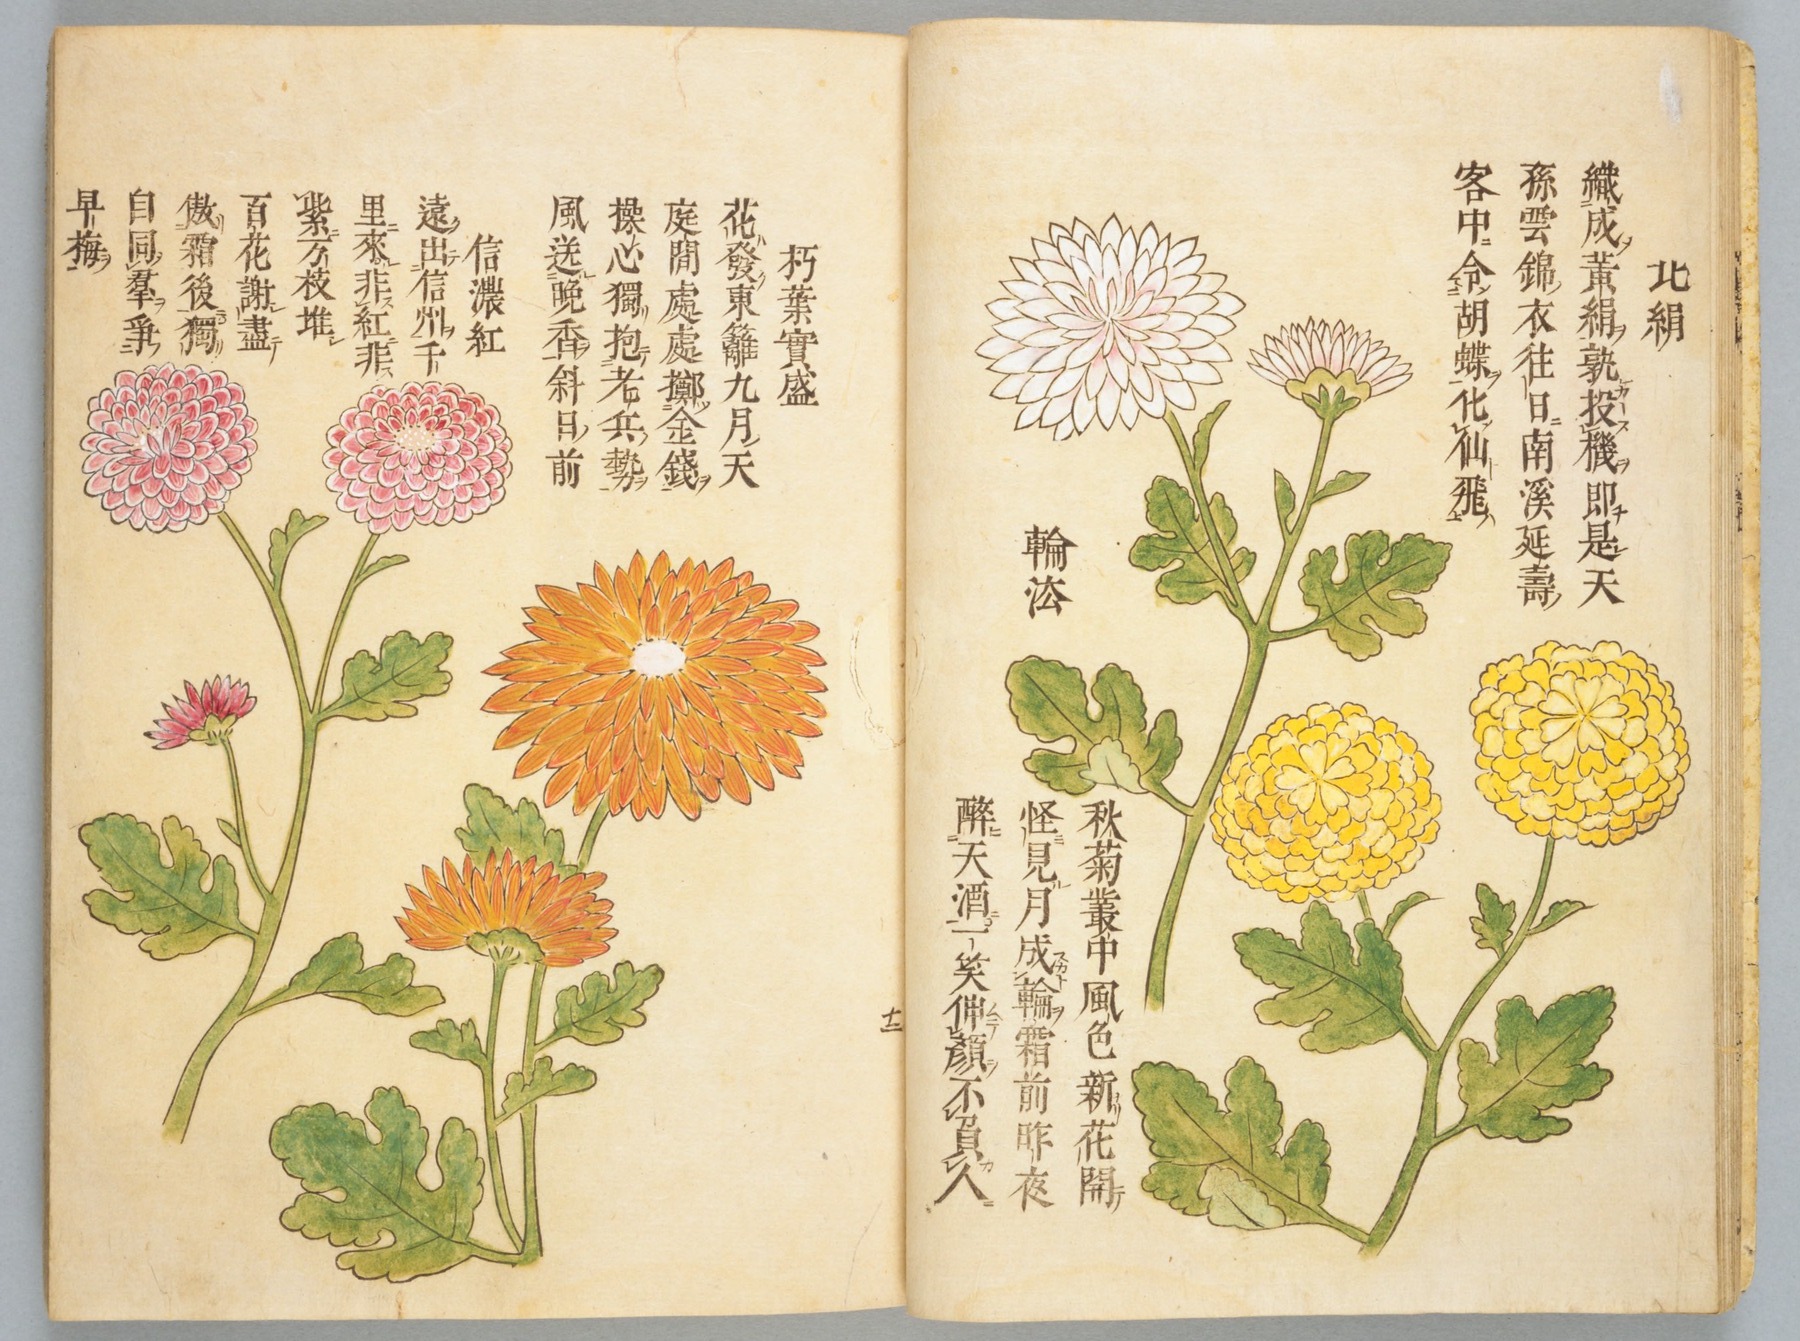 北絹
織成黃絹孰投機即是天
孫雲錦衣往日南溪延壽
客中令胡蝶化仙飛
輪洝
秋菊叢中風色新花開
怪見月成輪霜前昨夜
醉天酒一笑何顏不負人
朽葉實盛
花發東籬九月天
庭間處處擲金錢
操心獨抱老兵勢
風送晚香斜日前
信濃紅
遠出信州千
里來非紅非
紫万枝堆
百花謝盡
傲霜後獨
自同羣爭
早梅
十二